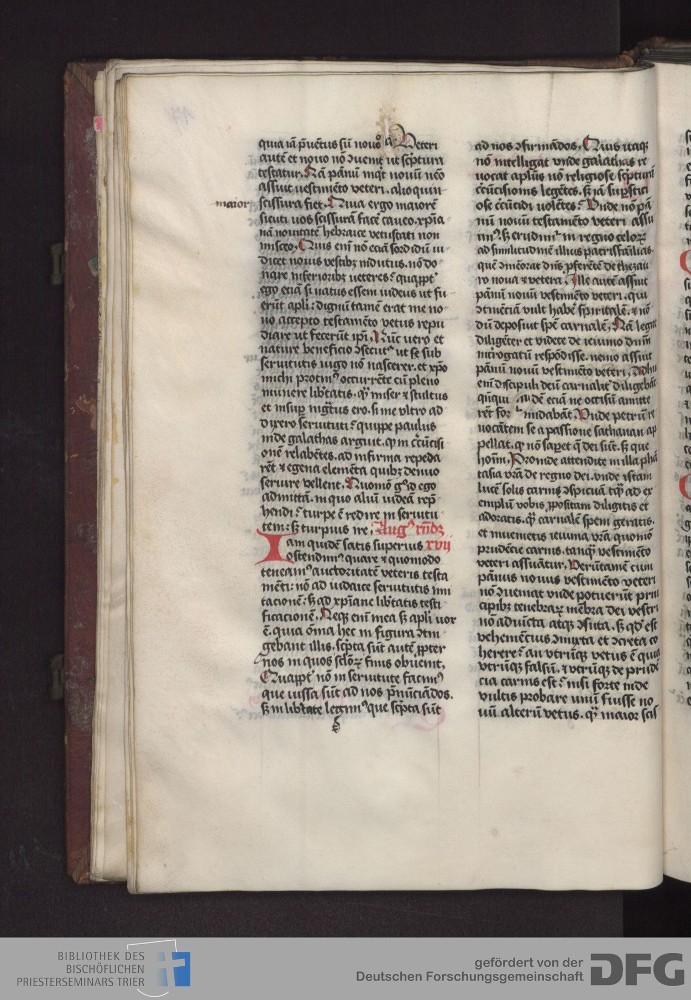 quia iā p̄uētus sū nouo. Veteri
autē et nouo nō ꝯuenit ut scͥptura
testatur. Nā pānū inqͥt nouū nēo
assuit uestimēto veteri. alioquin
maior scissura fiet. Quia ergo maiorē
sicuti uos scissurā facē caueo. xp̄ia
nā nouitatē hebraice vetustati non
misceo. Quis eni nō eciā sordidū iu
dicet nouis vestibꝫ indutus. nō do
nare inferioribꝫ ueteres? quappt̄
ego eciā si natus essem iudeus ut fu
erūt apl̄i: dignū tamē erat me no
uo accepto testamēto vetus repu
diare ut fecerūt ip̄i. Nūc uero et
nature beneficio ꝯsecutꝰ ut se sub
seruitutis iugo nō nascerer. et xp̄o
michi protinꝰ occurrēte cū pleno
munere lib'tatis. qͣ miser & stultus
et insuꝑ ingͣtus ero. si me vltro ad
dixero seruituti? quippe paulus
inde galathas arguit. qͣ in cͥcūcisi
onē relabētes. ad infirma repeda
rēt & egena elemēta quibꝫ denuo
seruire vellent. Nuomō gͦ id ego
admittā. in quo aliū uideā rep̄
hendi? turpe ē redire in seruitu
tem: sꝫ turpius ire. Augꝰ rn̄dꝫ
Iam quidē satis superius xvii
ostendimꝰ quare & quomodo
teneamꝰ auctoritatē veteris testa
mēti: nō ad iudaice seruitutis imi
tacionē: sꝫ ad xp̄iane lib'tatis testi
ficacionē. Neqꝫ eni mea sꝫ apl̄i uox
ē. quia om̄a hec in figura ꝯtin
gebant illis. scͥpta sūt autē ꝓpter
nos in quos scl̄oꝝ finis obuenit.
Quappt̄ nō in seruitute facimꝰ
que iussa sūt ad nos p̄nūciādos.
sꝫ in lib'tate legimꝰ que scͥpta sūt
ad nos ꝯfirmādos. Quis itaqꝫ
nō intelligat vnde galathas re
uocat apl̄us nō religiose scͥpturā
cͥcūcisionis legētes. sꝫ iā suꝑstici
ose cͥcūcidi volētes? Vnde nō pā
nū nouū testamēto veteri assu
imꝰ. sꝫ erudimꝰ in regno celoꝝ
ad similitudinē illius patrisfamilias.
quē ꝯmēorat dn̄s ꝓferētē de thezau
ro noua & vetera. Ille autē assuit
pānū nouū vestimēto veteri. qui
ꝯtinēciā vult habē spiritualē. & nō
dū deposuit spē carnalē. Nā legite
diligēter et videte de ieiunio dn̄m
īterogatū respōdisse. nemo assuit
pānū nouū vestimēto veteri. Adhuc
eni discipuli deū carnalit' diligebāt
quidē eciā ne occisū amitte
rēt formidabāt. Vnde petrū re
uocātem se a passione sathanan ap
pellat. qͣ nō saꝑet q̄ dei sūt. sꝫ que
hoīm. Proinde attendite in illa phā
tasia vr̄a de regno dei. vnde istam
lucē solis carnis ꝯspicuā tāqͣ ad ex
emplū vobis ꝓpositam diligitis et
adoratis. qͣ carnalē spem geratis.
et inuenietis ieiunia vr̄a quomō
prudēcie carnis. tanqͣ vestimēto
veteri assuātur. Verūtamē cum
pānus nouus vestimēto veteri
nō ꝯueniat vnde potuerūt prin
cipibꝫ tenebraꝝ mēbra dei vestri
nō adiūcta atqꝫ ꝯsuta. sꝫ qd̄ est
vehemēcius ꝯmixta et ꝯcreta co
herere? an vtrūqꝫ vetus ē quia
vtrūqꝫ falsū. & vtrūqꝫ de prudē
cia carnis est? nisi forte inde
vultis probare vnū fuisse no
uū alterū vetus. qͣ maior scis
BIBLIOTHEK DES
BISCHÖFLICHEN
PRIESTERSEMINARS TRIER
gefördert von der
Deutschen Forschungsgemeinschaft
DFG